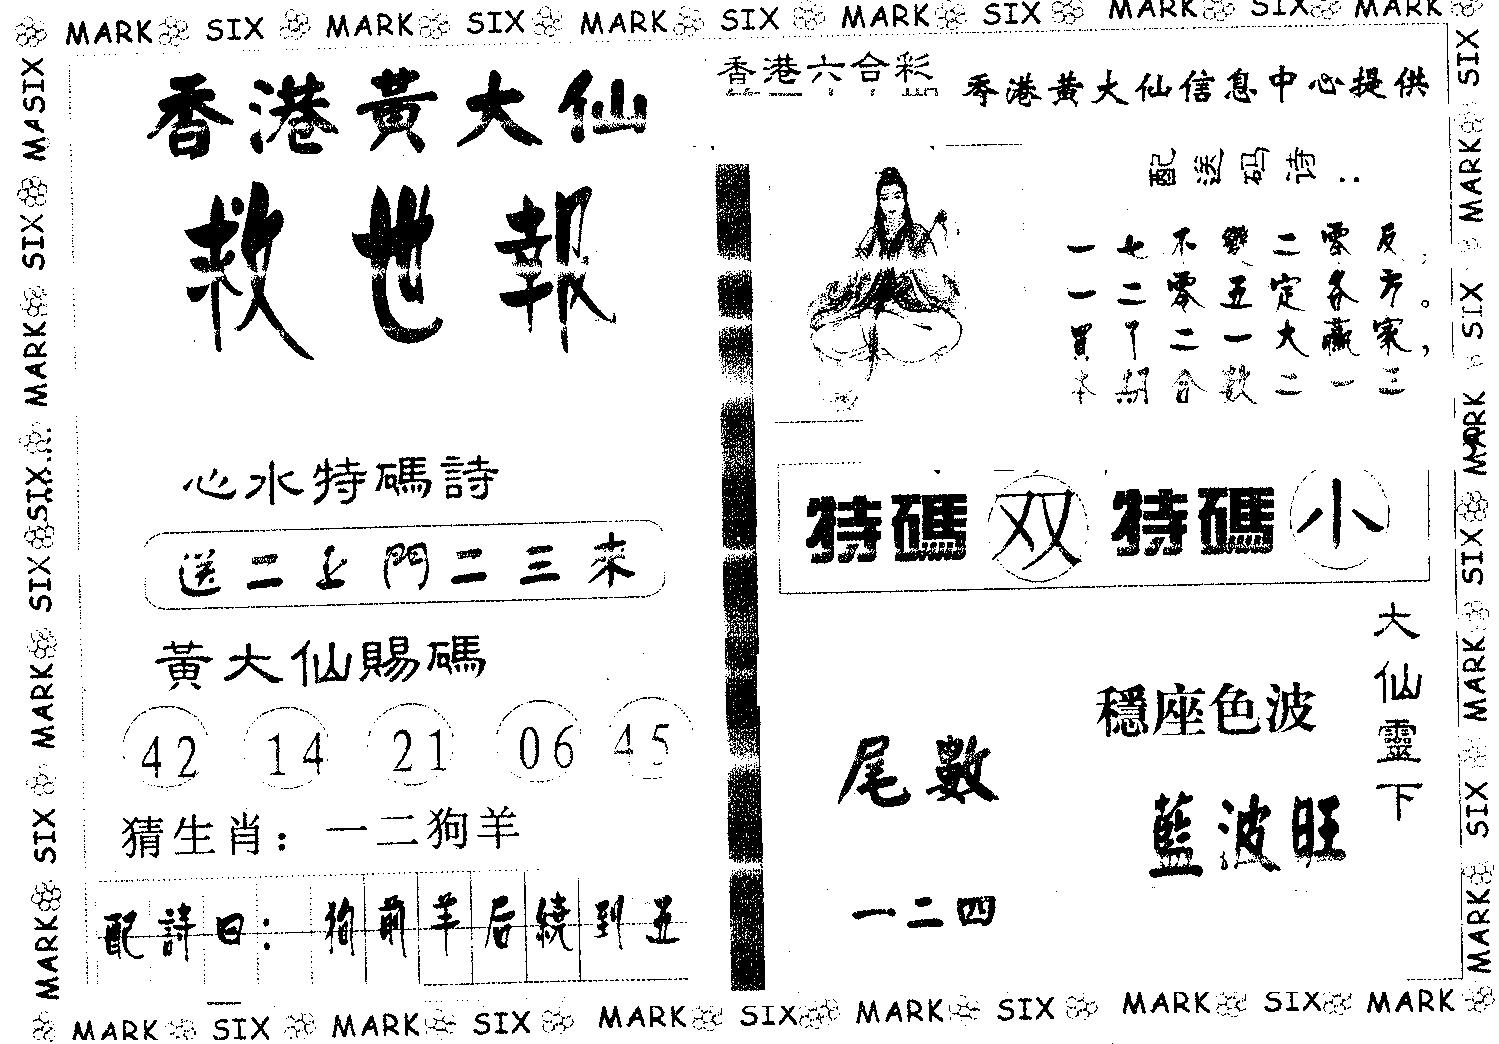 MARK SIX MARK SIX MARK SIX MARK SIX MARK SIX MARK
香港黃大仙
救世報
心水特碼詩
送二上門二三來
黃大仙賜碼
42 14 21 06 45
猜生肖：一二狗羊
配詩曰：狗前羊后繞到五
香港六合彩
香港黃大仙信息中心提供
配送码诗：
一七不變二零反，
一二零五定各方。
買丫二一大贏家，
本期合數二一三
特碼双 特碼小
大仙靈下
穩座色波
藍波旺
尾數
一二四
MARK SIX MARK SIX MARK SIX MARK SIX MARK SIX MARK